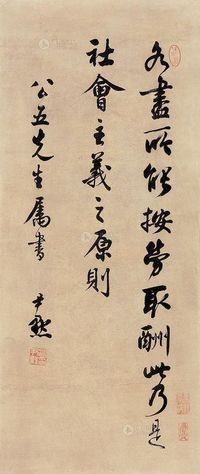 各盡所能按勞取酬此乃是
社會主義之原則
公五先生屬書
尹默